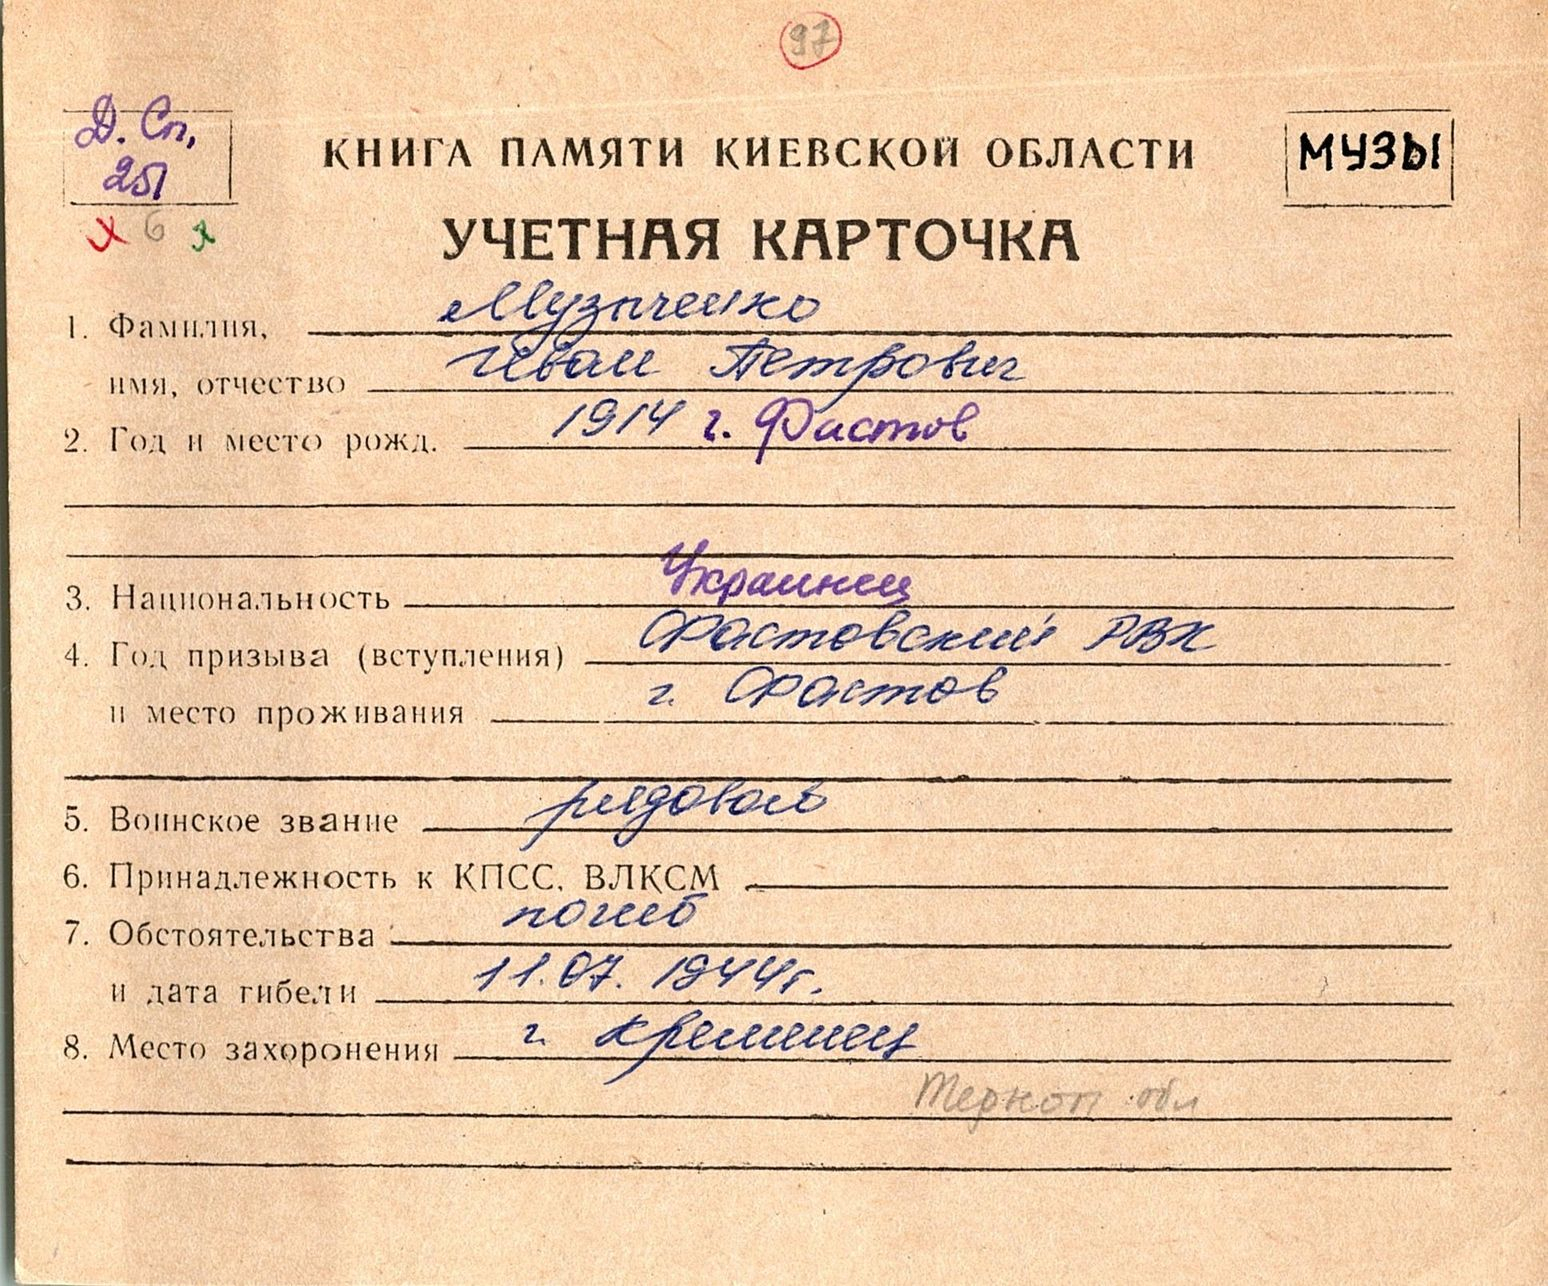 97
Д. Сп,
251
6
КНИГА ПАМЯТИ КИЕВСКОЙ ОБЛАСТИ
МУЗЫ
УЧЕТНАЯ КАРТОЧКА
1. Фамилия, Музыченко
имя, отчество Иван Петрович
2. Год и место рожд. 1914 г. Фастов
3. Национальность Украинец
4. Год призыва (вступления) Фастовский РВК
и место проживания г. Фастов
5. Воинское звание рядовой
6. Принадлежность к КПСС, ВЛКСМ
7. Обстоятельства погиб
и дата гибели 11.07.1944г.
8. Место захоронения г. Кременец
Терноп обл